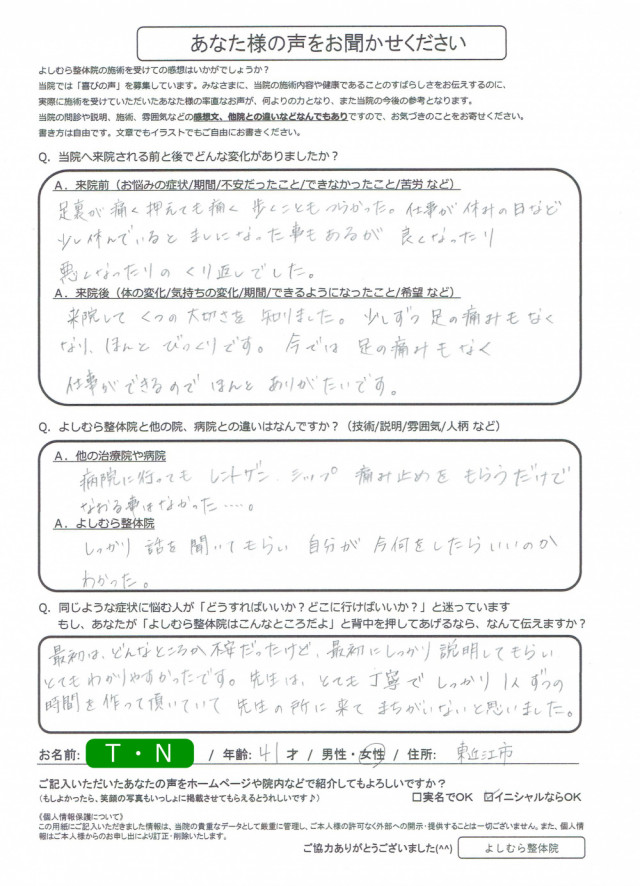 あなた様の声をお聞かせください
よしむら整体院の施術を受けての感想はいかがでしょうか？
当院では「喜びの声」を募集しています。みなさまに、当院の施術内容や健康であることのすばらしさをお伝えするのに、
実際に施術を受けていただいたあなた様の率直なお声が、何よりの力となり、また当院の今後の参考となります。
当院の問診や説明、施術、雰囲気などの感想文、他院との違いなどなんでもありですので、お気づきのことをお寄せください。
書き方は自由です。文章でもイラストでもご自由にお書きください。
Q．当院へ来院される前と後でどんな変化がありましたか？
A．来院前（お悩みの症状/期間/不安だったこと/できなかったこと/苦労 など）
足裏が痛く押えても痛く 歩くこともつらかった。仕事が休みの日など
少し休んでいると ましになった事もあるが 良くなったり
悪くなったりの くり返しでした。
A．来院後（体の変化/気持ちの変化/期間/できるようになったこと/希望 など）
来院して くつの大切さを 知りました。少しずつ 足の痛みもなく
なり、ほんと びっくりです。今では 足の痛みもなく
仕事ができるので ほんと ありがたいです。
Q．よしむら整体院と他の院、病院との違いはなんですか？（技術/説明/雰囲気/人柄 など）
A．他の治療院や病院
病院に行っても レントゲン、シップ 痛み止めを もらうだけで
なおる事はなかった‥‥。
A．よしむら整体院
しっかり 話を 聞いてもらい 自分が 今何をしたらいいのか
わかった。
Q．同じような症状に悩む人が「どうすればいいか？どこに行けばいいか？」と迷っています
もし、あなたが「よしむら整体院はこんなところだよ」と背中を押してあげるなら、なんて伝えますか？
最初は、どんなところか不安だったけど、最初にしっかり説明してもらい
とてもわかりやすかったです。先生は、とても丁寧で しっかり 1人ずつの
時間を作って頂いていて 先生の所に来て まちがいないと思いました。
お名前: T・N / 年齢: 41 才 / 男性・女性 / 住所: 東近江市
ご記入いただいたあなたの声をホームページや院内などで紹介してもよろしいですか？
（もしよかったら、笑顔の写真もいっしょに掲載させてもらえるとうれしいです♪） □実名でOK ☑イニシャルならOK
《個人情報保護について》
この用紙にご記入いただきました情報は、当院の貴重なデータとして厳重に管理し、ご本人様の許可なく外部への開示・提供することは一切ございません。また、個人情
報はご本人様からのお申し出により訂正・削除いたします。
ご協力ありがとうございました(^^) よしむら整体院